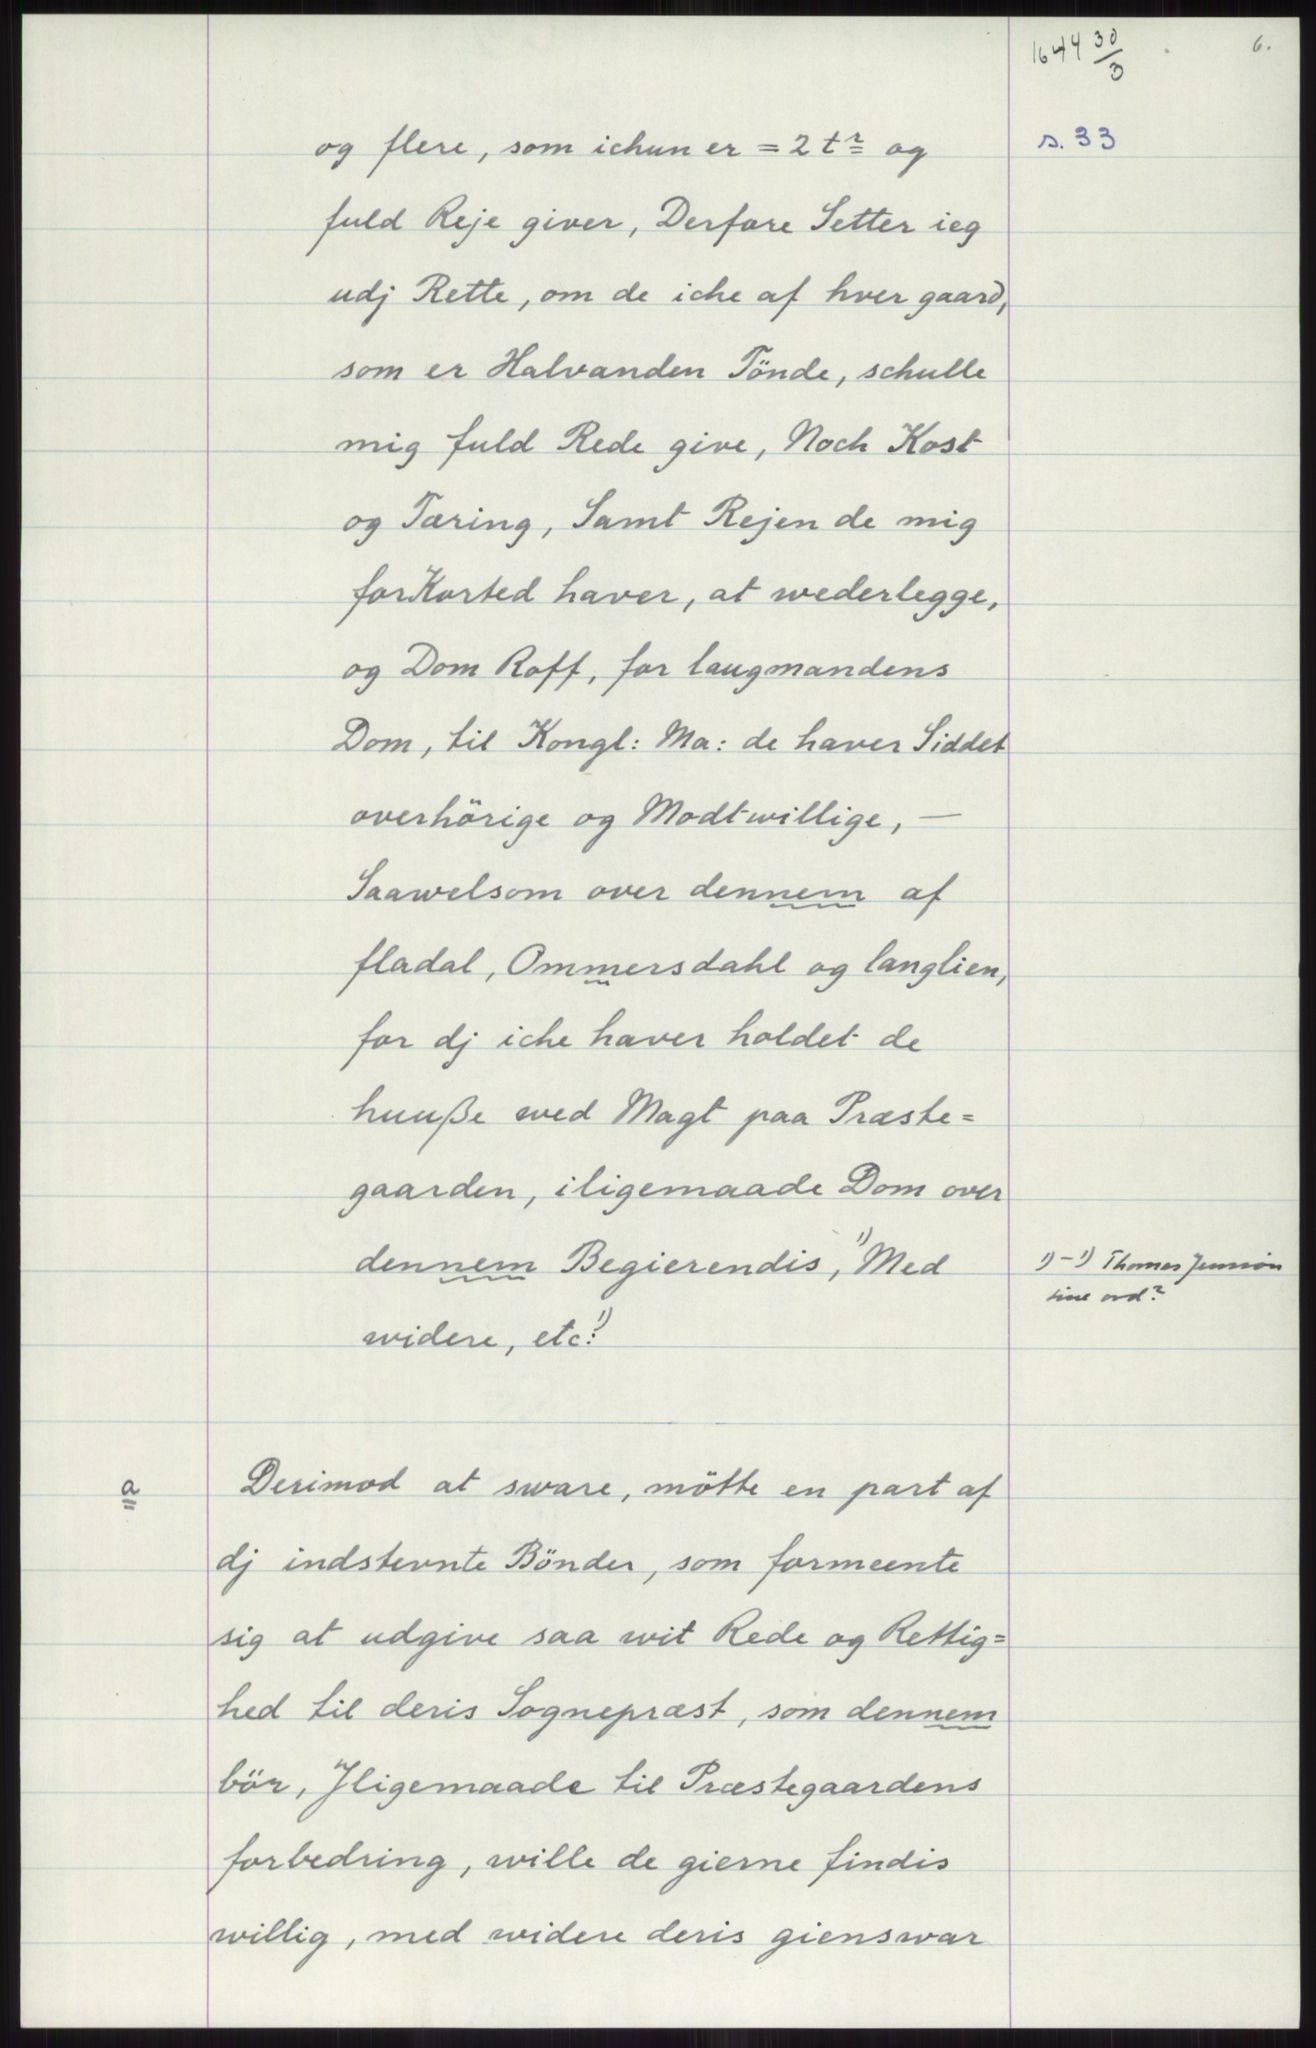 1644 30/3
6.
s. 33
og flere, som ichun er = 2 tr og
fuld Reje giver, Derfore Setter ieg
udj Rette, om de iche af hver gaard,
som er Halvanden Tönde, schulle
mig fuld Rede give, Noch Kost
og Tæring, Samt Rejen de mig
forKorted haver, at wederlegge,
og Dom Roff, for laugmandens
Dom, til Kongl: Ma: de haver Siddet
overhörige og Modtwillige, —
Saawelsom over dennem af
fladal, Ommersdahl og langlien,
for dj iche haver holdet de
huuße wed Magt paa Præste=
gaarden, iligemaade Dom over
dennem Begierendis, 1) Med
widere, etc: 1)
1) - 1) Thomas Jenssøn
sine ord?
a
Derimod at sware, mötte en part af
dj indstevnte Bönder, som formeente
sig at udgive saa wit Rede og Rettig=
hed til deris Sognepræst, som dennem
bör, Jligemaade til Præstegaardens
forbedring, wille de gierne findis
willig, med widere deris gienswar